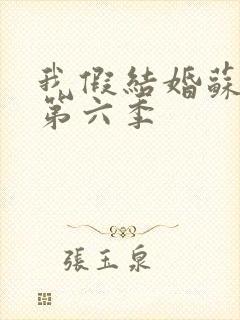 我假結婚蘇
第六季
張玉泉